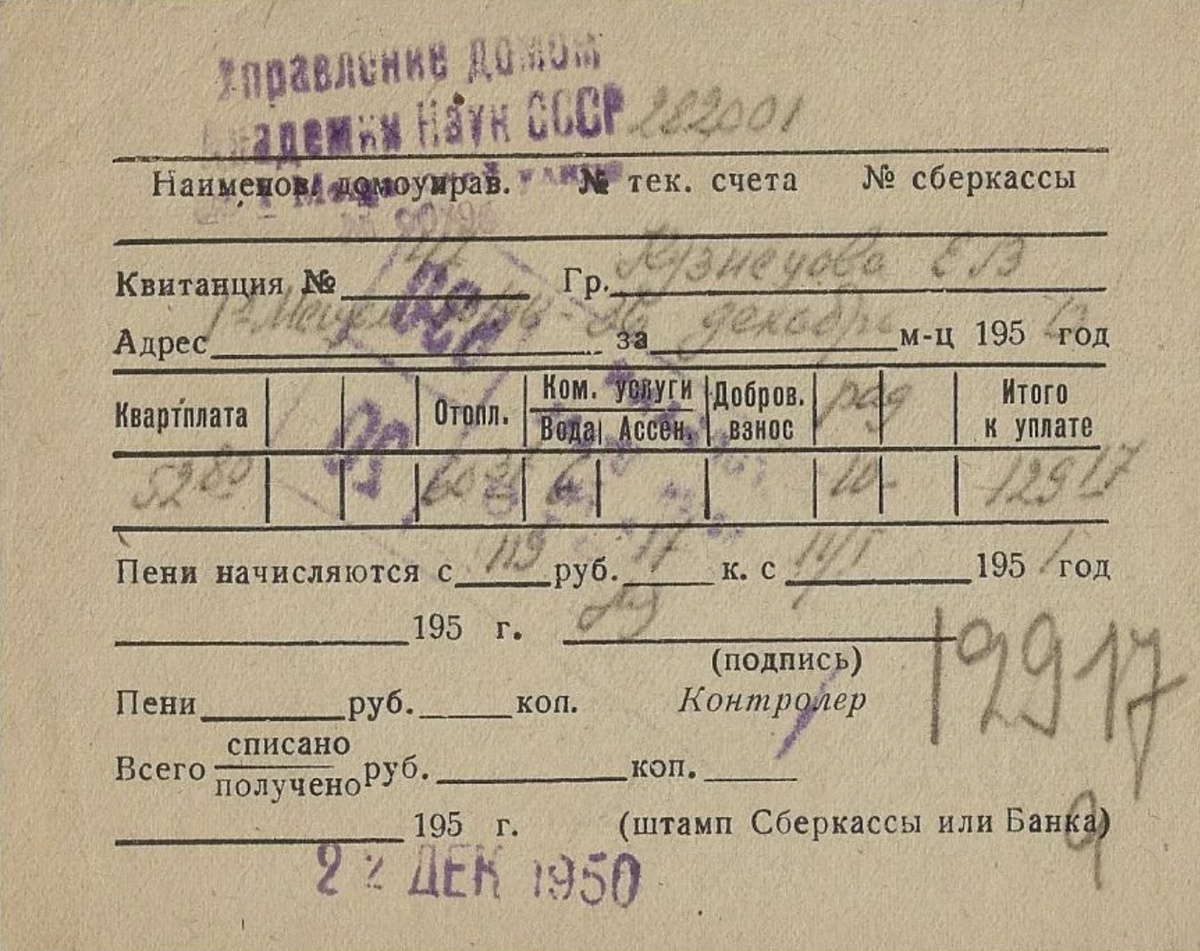 Управление домом
Академии Наук СССР 282001
Наименов. домоуправ. № тек. счета № сберкассы
Квитанция № Гр. Кузнецова Е В
Адрес за декабрь м-ц 195 год
Квартплата Отопл. Ком. услуги Вода Ассен. Добров. взнос рад Итого к уплате
52 80 60 6 10 129 17
Пени начисляются с 119 руб. 17 к. с 195 1 год
195 г.
(подпись)
Пени руб. коп. Контролер
129 17
Всего списано получено руб. коп.
195 г. (штамп Сберкассы или Банка)
9
ДЕК 1950